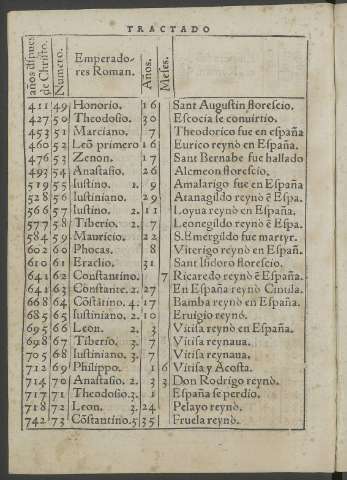 TRACTADO
años dſpues de Chriſto. Numero. Emperado-res Roman. Años. Meſes.
411 49 Honorio. 16 Sant Auguſtin floreſcio.
427 50 Theodoſio. 30 Eſcocia ſe conuirtio.
453 51 Marciano. 7 Theodorico fue en eſpaña
460 52 Leō primero 16 Eurico reynò en Eſpaña.
476 53 Zenon. 17 Sant Bernabe fue hallado
493 54 Anaſtaſio. 26 Alcmeon floreſcio.
519 55 Iuſtino. 1. 9 Amalarigo fue en Eſpaña
528 56 Iuſtiniano. 29 Atanagildo reynò ē Eſpa.
566 57 Iuſtino. 2. 11 Loyua reynò en Eſpaña.
577 58 Tiberio. 2. 7 Leonegildo reynò ē Eſpa.
584 59 Mauricio. 22 S. Emergildo fue martyr.
602 60 Phocas. 8 Viterigo reynò en Eſpañ.
610 61 Eraclio. 31 Sant Iſidoro floreſcio.
641 62 Conſtantino. 7 Ricaredo reynò ē Eſpaña.
641 63 Cōnſtante. 2. 27 En Eſpaña reynò Cintila.
668 64 Cōſtātino. 4. 17 Bamba reynò en Eſpaña.
685 65 Iuſtiniano. 2. 10 Eruigio reynó.
695 66 Leon. 2. 3 Vitiſa reynò en Eſpaña.
698 67 Tiberio. 3. 7 Vitiſa reynaua.
705 68 Iuſtiniano. 3. 7 Vitiſa reynaua.
712 69 Philippo. 1 6 Vitiſa y Acoſta.
714 70 Anaſtaſio. 2. 3 3 Don Rodrigo reynò.
717 71 Theodoſio. 3. 1 Eſpaña ſe perdio.
718 72 Leon. 3. 24 Pelayo reynò.
742 73 Cōſtantino. 5 35 Fruela reynò.